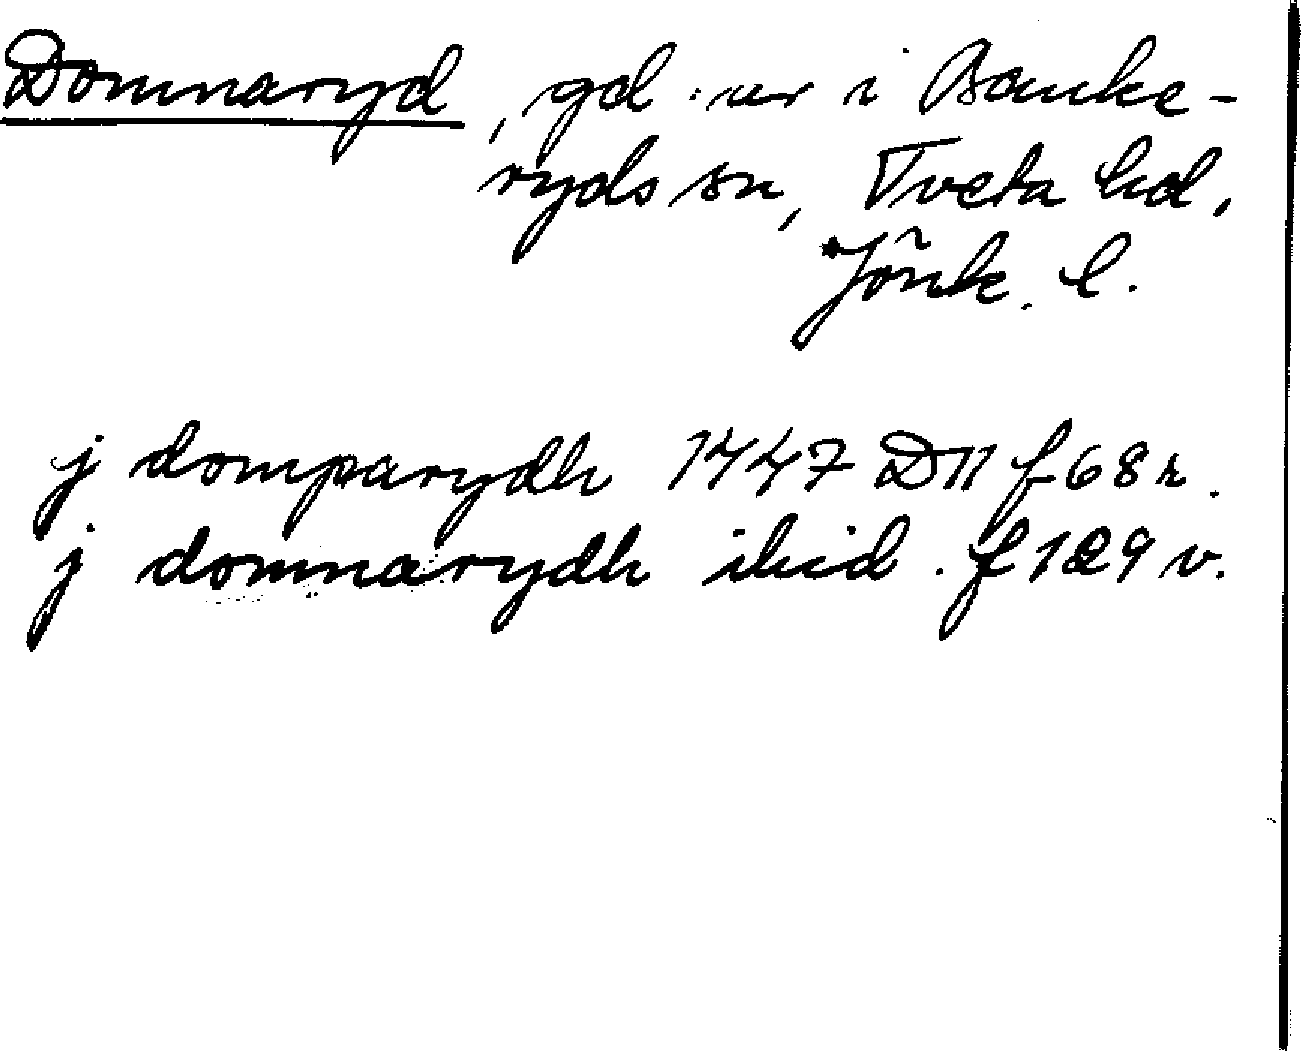 Domnaryd, gd:ar i Banke-
ryds sn, Tveta hd,
Jönk. l.
j domparydh 1447 D11 f 68 r.
j domnarydh ibid. f 129 v.